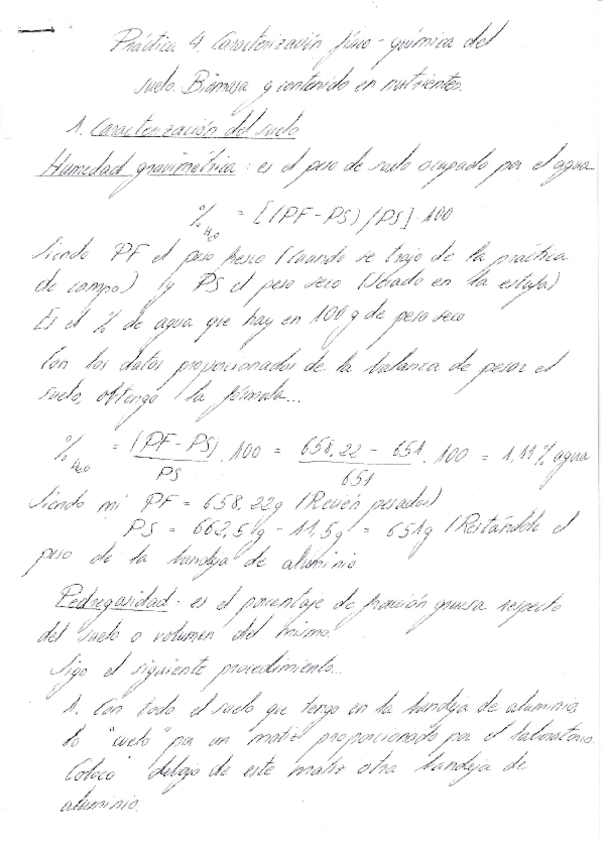 Práctica 4. Caracterización físico-química del
suelo. Biomasa y contenido en nutrientes.
1. Caracterización del suelo
Humedad gravimétrica: es el peso de suelo ocupado por el agua
%H2O = [(PF-PS)/PS]·100
Siendo PF el peso fresco (cuando se trajo de la práctica
de campo) y PS el peso seco (secado en la estufa)
Es el % de agua que hay en 100 g de peso seco
Con los datos proporcionados de la balanza de pesar el
suelo, obtengo la fórmula...
%H2O = (PF-PS)/PS · 100 = (658,22 - 651)/651 · 100 = 1,11% agua
Siendo mi PF = 658,22g (Recién pesado)
PS = 662,5g - 11,5g = 651g (Restándole el
peso de la bandeja de aluminio
Pedregosidad- es el porcentaje de fracción gruesa respecto
del suelo o volumen del mismo.
Sigo el siguiente procedimiento...
1. Con todo el suelo que tengo en la bandeja de aluminio,
lo "cuelo" por un matiz proporcionado por el laboratorio.
Coloco debajo de este matiz otra bandeja de
aluminio.